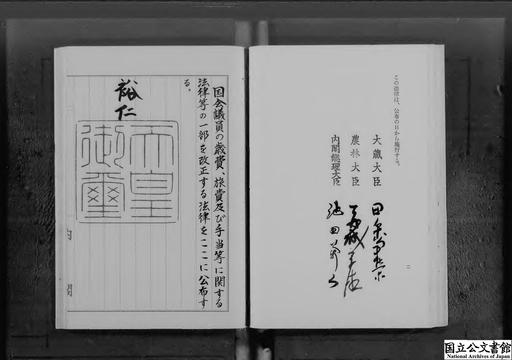 この法律は、公布の日から施行する。
大蔵大臣
農林大臣
内閣総理大臣 池田勇人
二
国会議員の歳費、旅費及び手当等に関する
法律等の一部を改正する法律をここに公布す
る。
裕仁
天皇
御璽
内閣
国立公文書館
National Archives of Japan